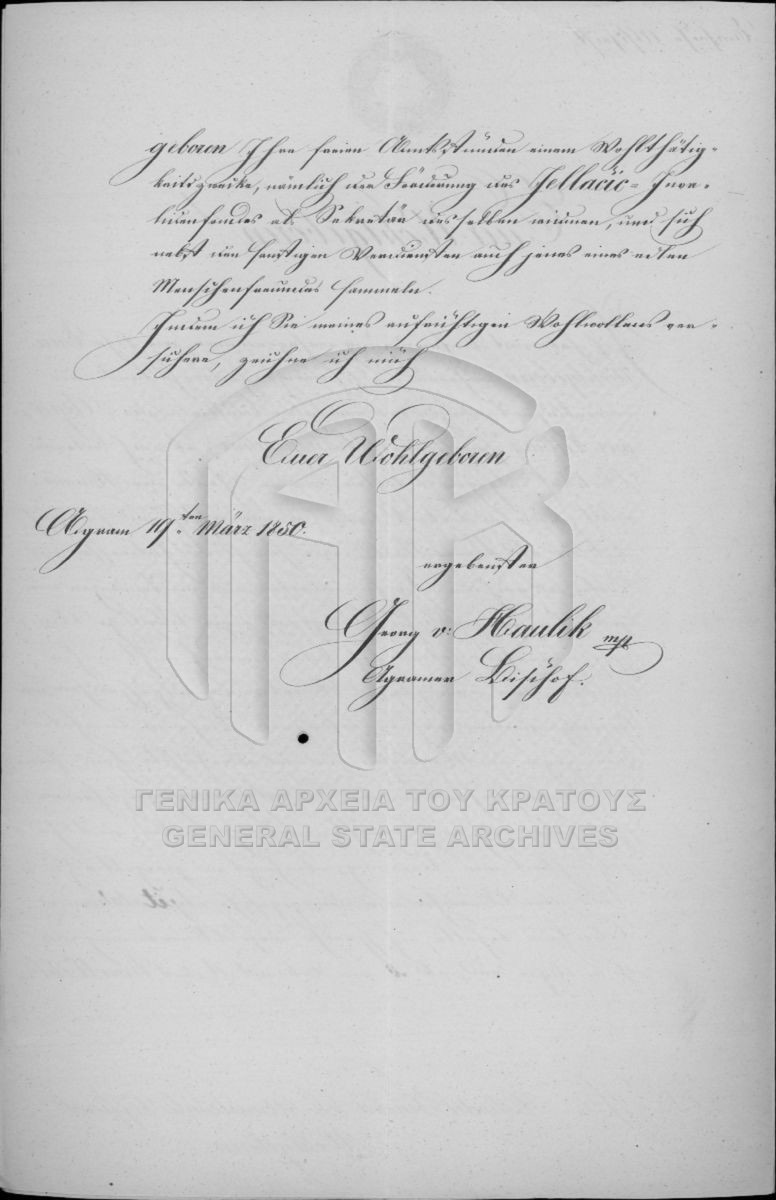 geboren Ihre freien Amtsstunden einem Wohlthätig-
keitszwecke, nämlich der Förderung des Jellačić-Inva-
lidenfondes als Sekretär desselben widmen, und sich
nebst den sonstigen Verdiensten auch jenes eines edlen
Menschenfreundes sammeln.
Indem ich Sie meines aufrichtigen Wohlwollens ver-
sichere, zeichne ich mich
Euer Wohlgeboren
Agram 19ten März 1850.
ergebenster
Georg v: Haulik mp
Agramer Bischof.
ΓΕΝΙΚΑ ΑΡΧΕΙΑ ΤΟΥ ΚΡΑΤΟΥΣ
GENERAL STATE ARCHIVES